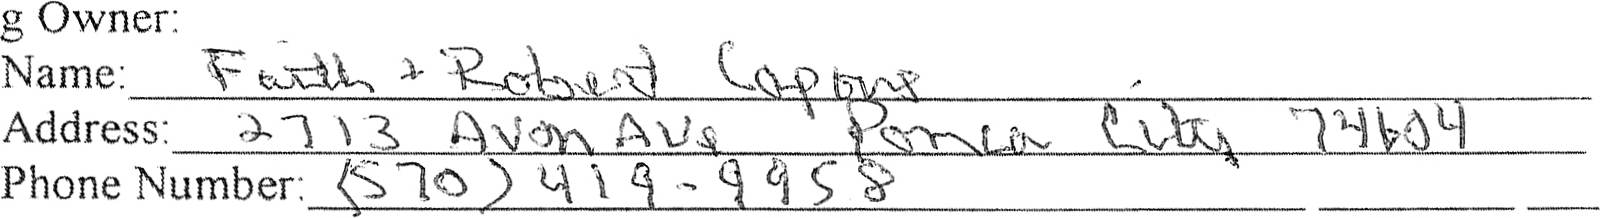 g Owner:
Name: Faith + Robert Capone
Address: 2713 Avon Ave Ponca City 74604
Phone Number: (570) 419-9958